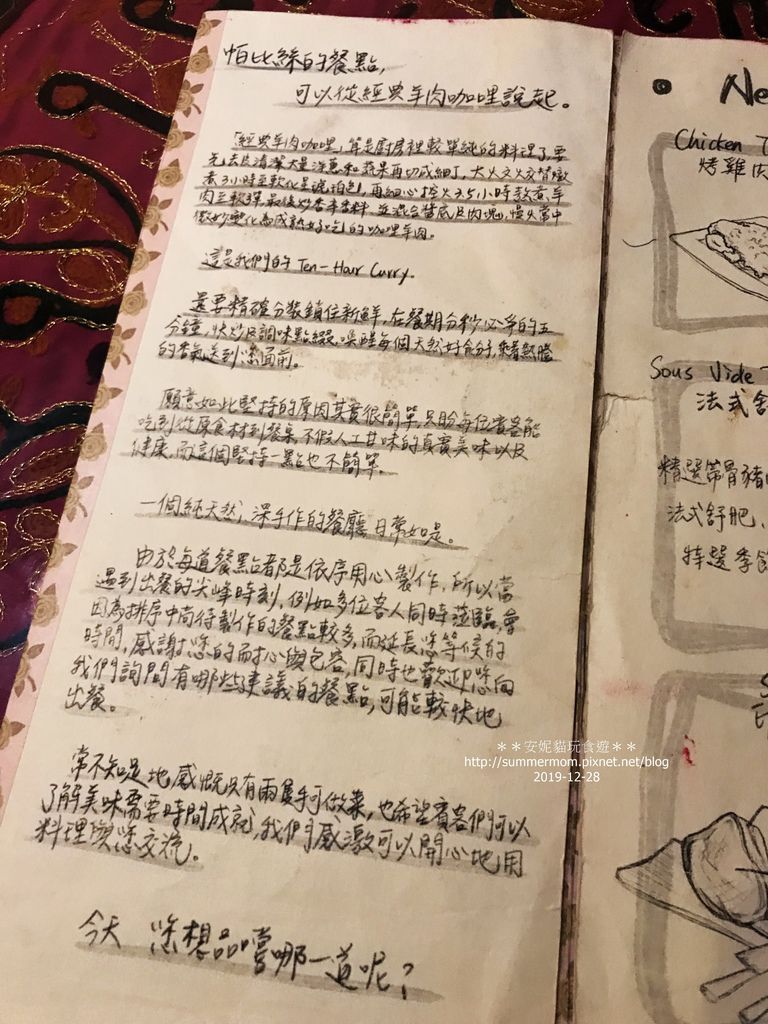 帕比絲的餐點,
可以從經典羊肉咖哩說起。
「經典羊肉咖哩」算是廚房裡較單純的料理了,要
先去皮清潔大量洋蔥和蔬果再切成細丁,大火文火交替燉
煮3小時至軟化呈琥珀色,再細心控火3.5小時熬煮羊
肉至軟彈,最後炒香辛香料,並混合醬底及肉塊,慢火當中
微妙變化為成熟好吃的咖哩羊肉。
這是我們的 Ten-Hour Curry.
還要精確分裝鎖住新鮮,在餐期分秒必爭的五
分鐘,快炒及調味點綴,喚醒每個天然好食分子,乘著熱騰
的香氣送到您面前。
願意如此堅持的原因其實很簡單,只盼每位賓客能
吃到從原食材到餐桌,不假人工甘味的真實美味以及
健康,而這個堅持一點也不簡單。
一個純天然,深手作的餐廳日常如是。
由於每道餐點都是依序用心製作,所以當
遇到出餐的尖峰時刻,例如多位客人同時蒞臨,會
因為排序中尚待製作的餐點較多,而延長您等候的
時間,感謝您的耐心與包容,同時也歡迎您向
我們詢問有哪些建議的餐點,可能較快地
出餐。
常不知足地感慨只有兩隻手可做菜,也希望賓客們可以
了解美味需要時間成就,我們感激可以開心地用
料理與您交流。
今天 您想品嚐哪一道呢?
Ne
Chicken T
烤雞肉
Sous Vide
法式舒
精選帶骨豬
法式舒肥、
特選季節
**安妮貓玩食遊**
http://summermom.pixnet.net/blog
2019-12-28